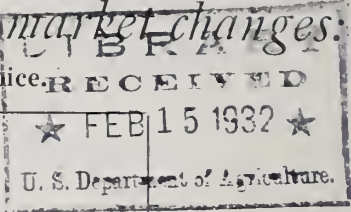 market changes:
LIBRARY
ice. RECEIVED
★ FEB 15 1932 ★
U. S. Department of Agriculture.